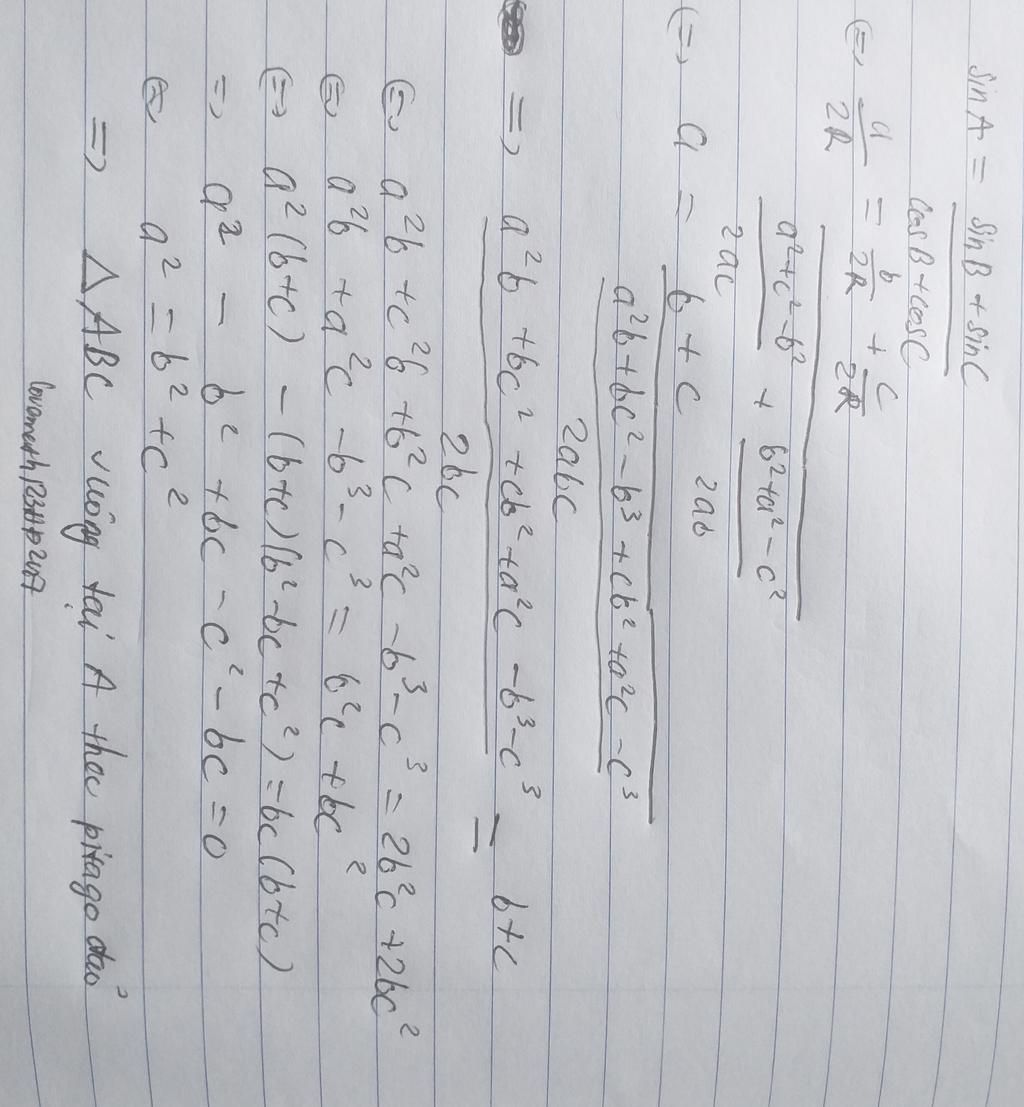 sin A = (sin B + sin C) / (cos B + cos C)
(=) a/2R = (b/2R + c/2R) / ((a²+c²-b²)/2ac + (b²+a²-c²)/2ab)
(=) a = (b + c) / ((a²b + bc² - b³ + cb² + a²c - c³)/2abc)
=> (a²b + bc² + cb² + a²c - b³ - c³)/2bc = b+c
(=) a²b + c²b + b²c + a²c - b³ - c³ = 2b²c + 2bc²
(=) a²b + a²c - b³ - c³ = b²c + bc²
(=) a²(b+c) - (b+c)(b² - bc + c²) = bc(b+c)
=> a² - b² + bc - c² - bc = 0
(=) a² = b² + c²
=> △ABC vuông tại A theo pitago đảo